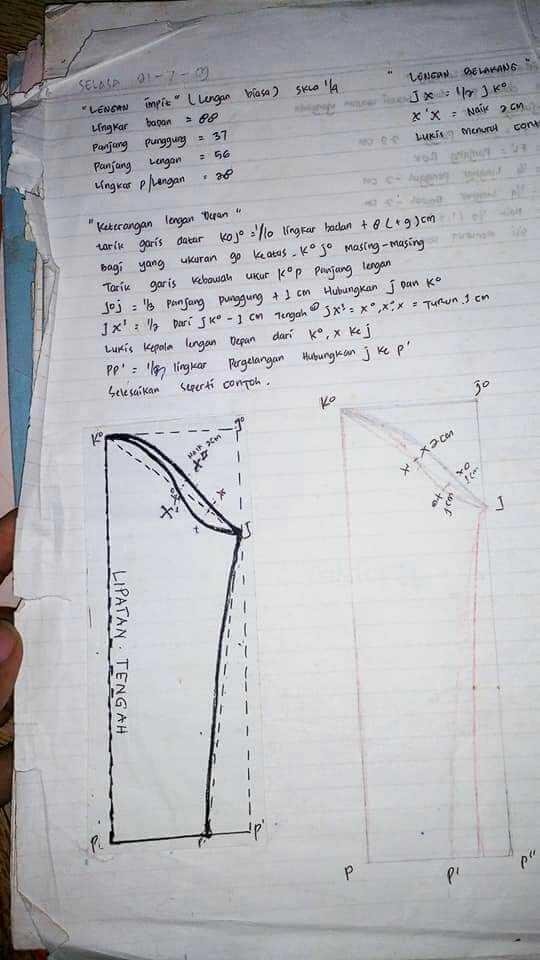 SELASA 21-7-09
"LENGAN impit" (Lengan biasa) SKLA 1/4
Lingkar badan = 88
Panjang punggung = 37
Panjang Lengan = 56
Lingkar P/Lengan = 28
"LENGAN BELAKANG"
JX = 1/2 J K°
X'X = Naik 2 cm
Lukis menurut cont
"Keterangan lengan Depan"
tarik garis datar K0J0 = 1/10 lingkar badan + 8 (+9) cm
Bagi yang ukuran 90 keatas. K°J° Masing-masing
Tarik garis kebawah ukur K°P Panjang lengan
J0J = 1/3 Panjang Punggung + 1 cm Hubungkan J Dan K°
Lukis Kepala lengan Depan dari K°, X ke J
lingkar Pergelangan Hubungkan J ke P'
Selesaikan seperti contoh.
K°
J°
Naik 2cm
X
X
X
J
LIPATAN TENGAH
P'
K°
J°
X
X 2cm
X0
1cm
1cm
J
P
P'
P"